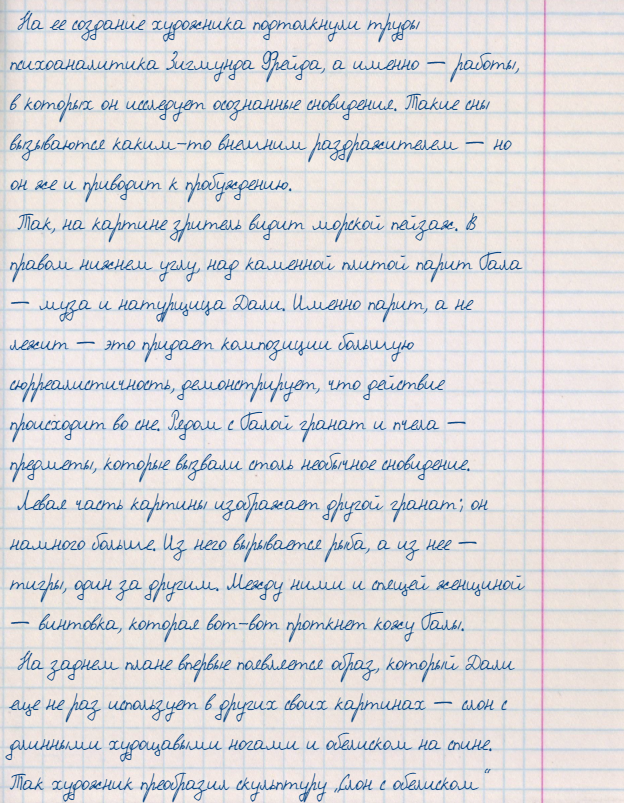 На ее создание художника подтолкнули труды
психоаналитика Зигмунда Фрейда, а именно — работы,
в которых он исследует осознанные сновидения. Такие сны
вызываются каким-то внешним раздражителем — но
он же и приводит к пробуждению.
Так, на картине зритель видит морской пейзаж. В
правом нижнем углу, над каменной плитой парит Гала
— муза и натурщица Дали. Именно парит, а не
лежит — это придает композиции большую
сюрреалистичность, демонстрирует, что действие
происходит во сне. Рядом с Галой гранат и пчела —
предметы, которые вызвали столь необычное сновидение.
Левая часть картины изображает другой гранат; он
намного больше. Из него вырывается рыба, а из нее —
тигры, один за другим. Между ними и спящей женщиной
— винтовка, которая вот-вот проткнет кожу Галы.
На заднем плане впервые появляется образ, который Дали
еще не раз использует в других своих картинах — слон с
длинными худощавыми ногами и обелиском на спине.
Так художник преобразил скульптуру „Слон с обелиском“